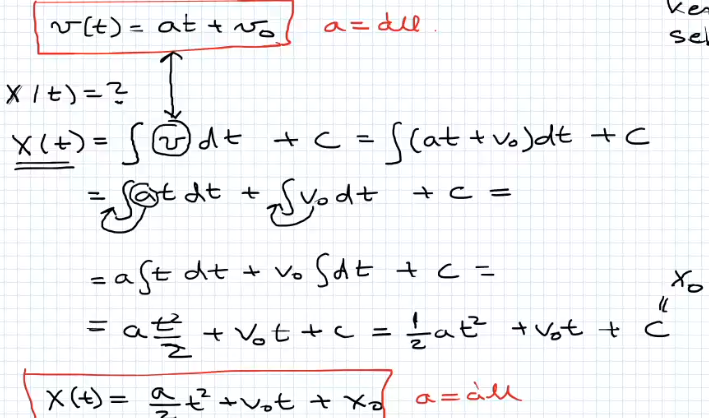 v(t) = at + v₀ a = áll.
X(t) = ?
X(t) = ∫ v dt + c = ∫(at + v₀)dt + c
= ∫at dt + ∫v₀dt + c =
= a∫t dt + v₀ ∫dt + c =
= a t²/2 + v₀t + c = ½at² + v₀t + c
x₀
X(t) = a/2 t² + v₀t + x₀ a = áll